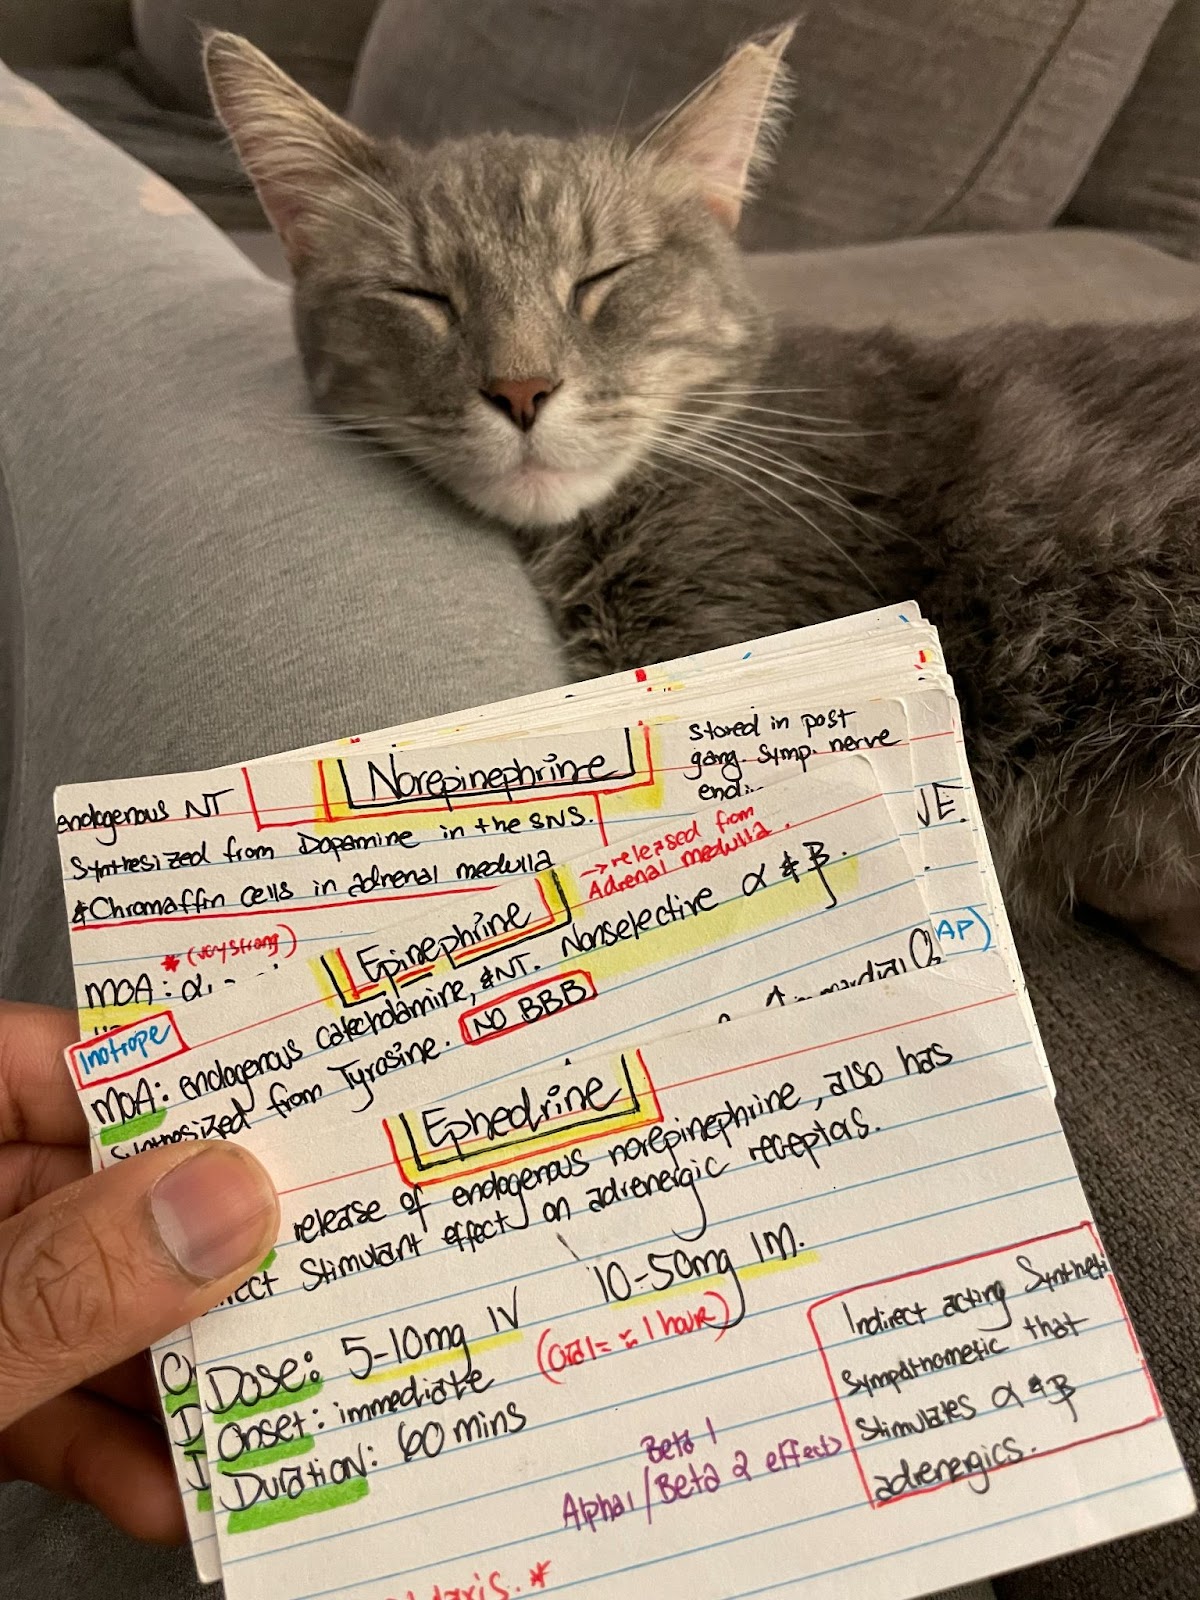 Norepinephrine
stored in post
gang. symp. nerve
endogenous NT
Synthesized from Dopamine in the SNS.
& Chromaffin cells in adrenal medulla
* (very strong)
MOA: α1
Inotrope
Epinephrine
→ released from
Adrenal medulla.
MOA: endogenous catecholamine, & NT. Nonselective α & β.
from Tyrosine. NO BBB
VE.
AP)
Ephedrine
release of endogenous norepinephrine, also has
Stimulant effect on adrenergic receptors.
Dose: 5-10mg IV 10-50mg IM.
(Oral = ≈ 1 hour)
Onset: immediate
Duration: 60 mins
Beta 1
Alpha 1 / Beta 2 effects
Indirect acting
Sympathometic that
Stimulates α & β
adrenergics.